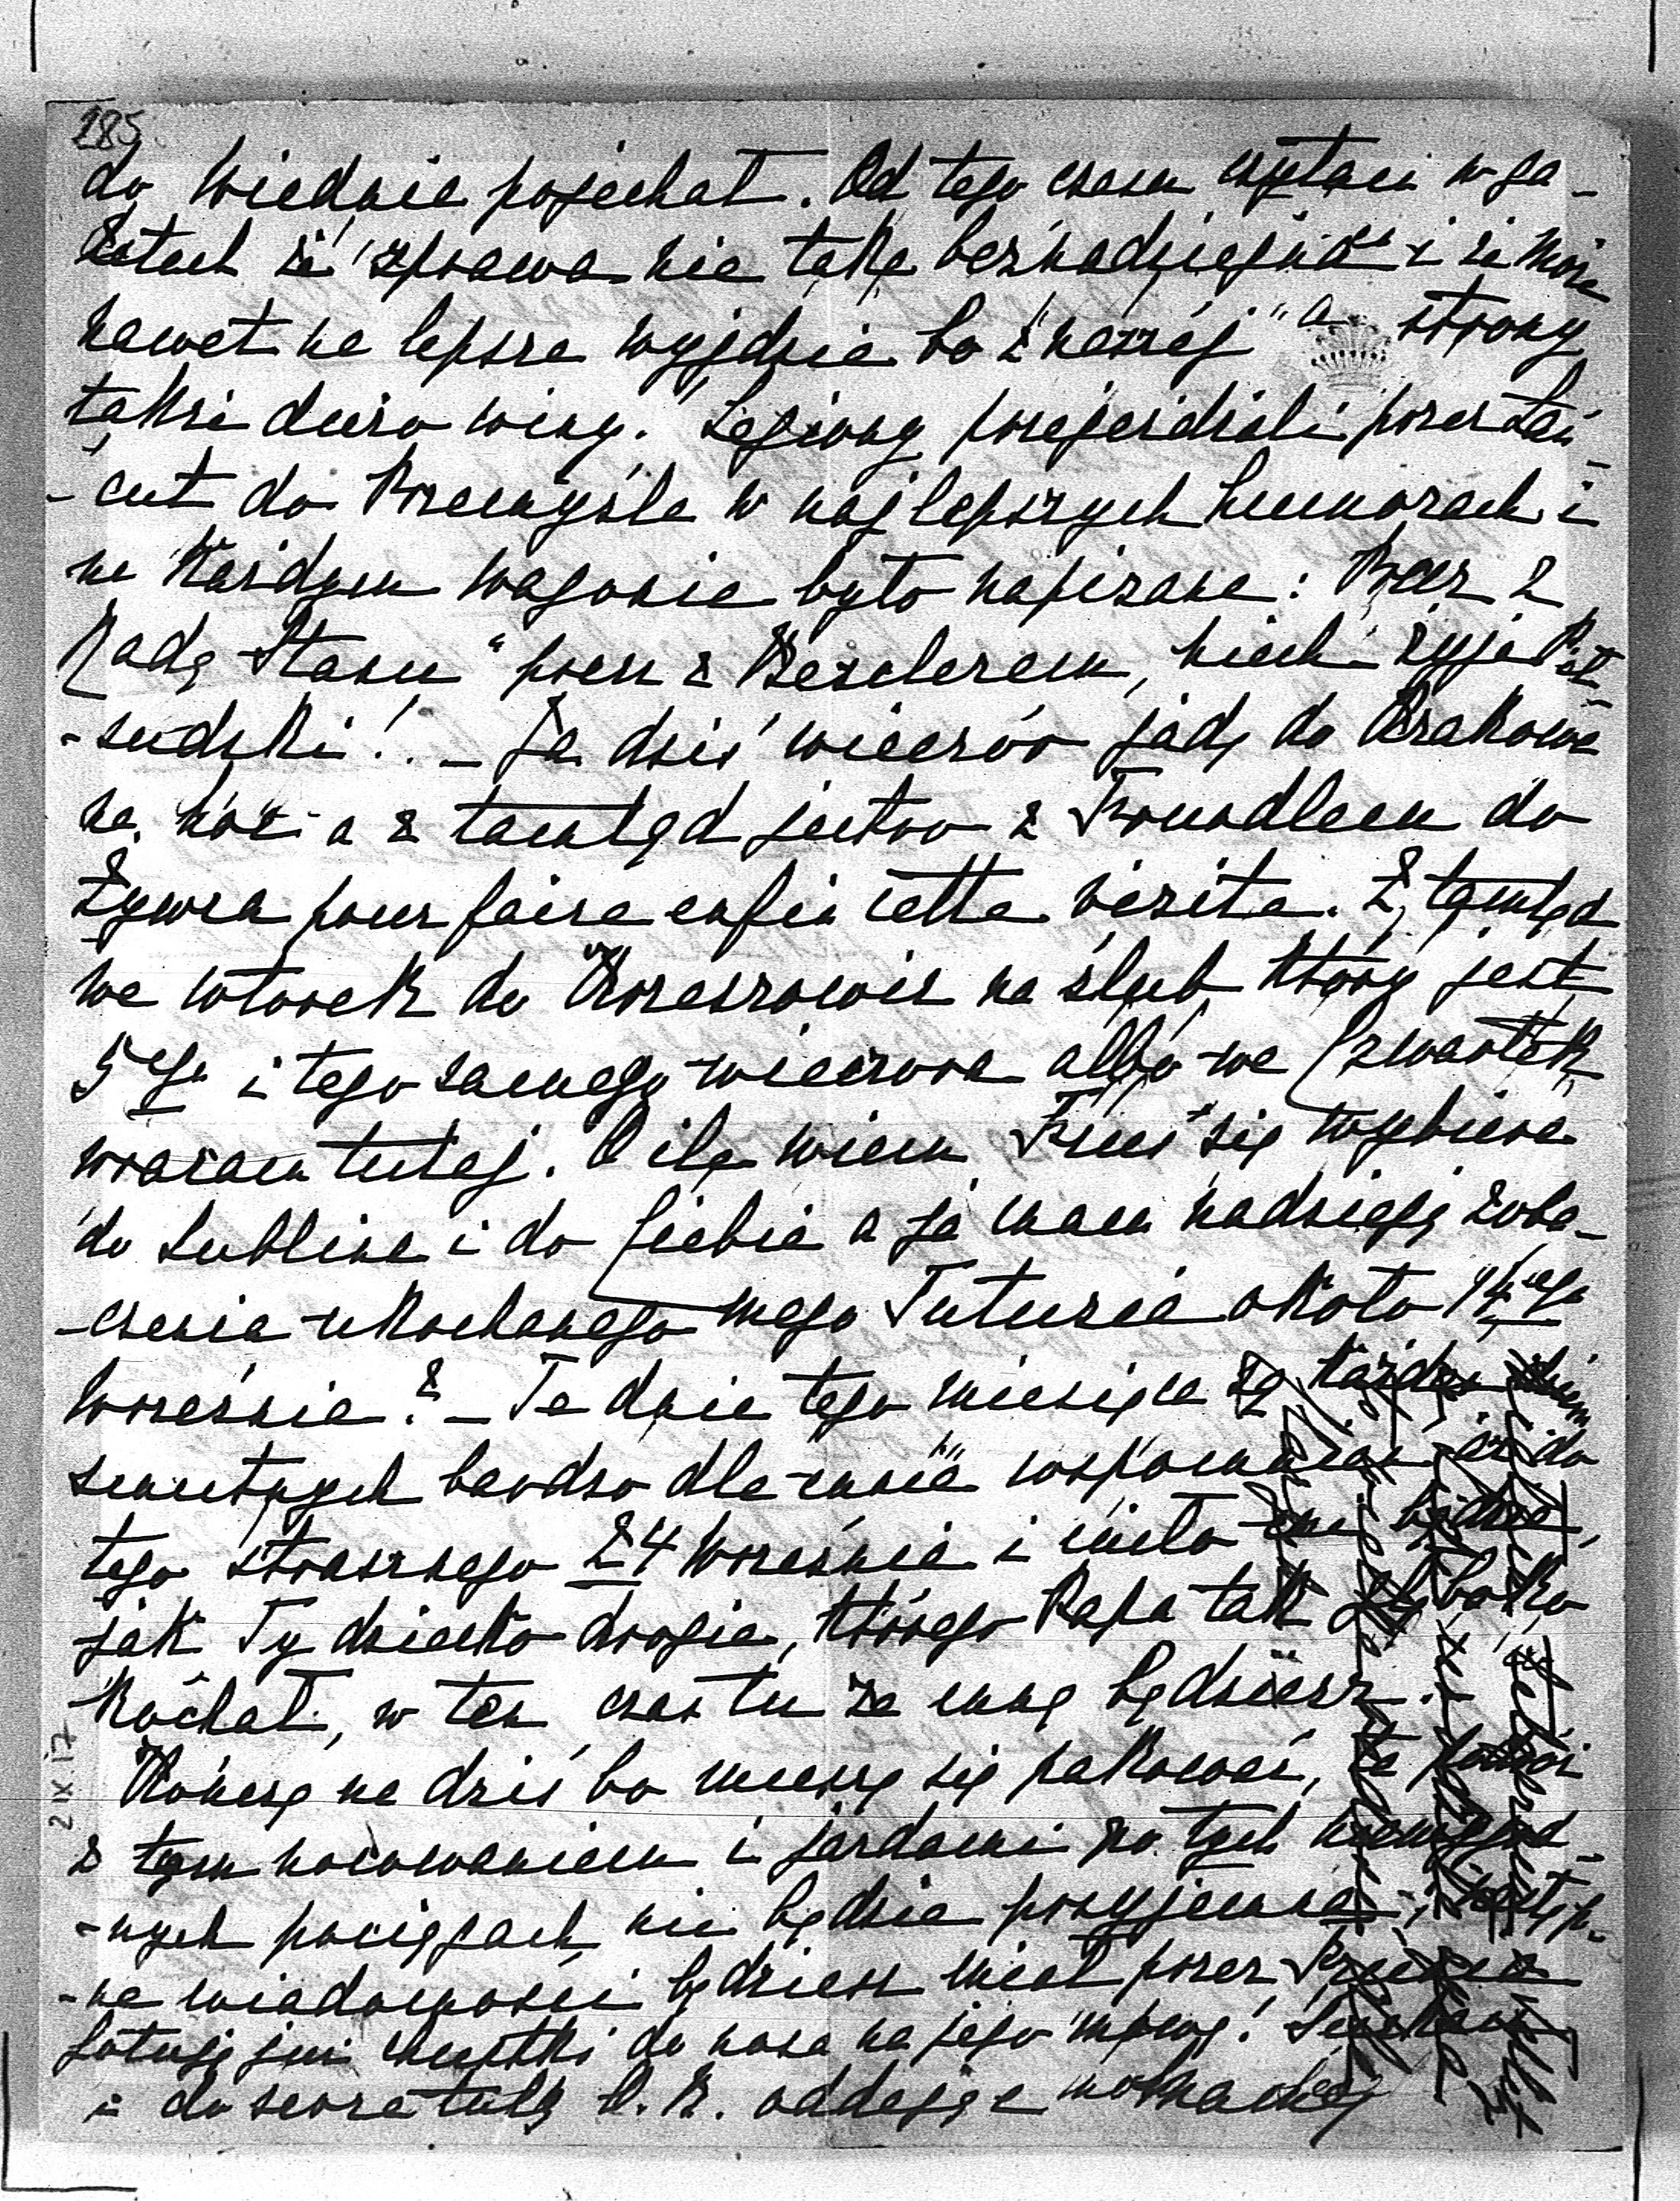 285
do Wiednia pojechał. Od tego czasu czytam w ga-
zetach że "sprawa nie taka beznadziejna" i że może
nawet na lepsze wyjdzie bo z naszej "a strony
także dużo winy. Legiony przejeżdżali przez Łań-
-cut do Przemyśla w najlepszych humorach i
na każdym wagonie było napisane: Precz z
Radą Stanu" precz z Bezelerem, niech żyje Pił-
-sudski! . – Ja dziś wieczór jadę do Krakowa
na noc a z tamtąd jutro z Fromodlem do
Żywca pour faire enfin cette visite. Z tamtąd
we wtorek do Krzeszowic na ślub, który jest
5go i tego samego wieczora albo we Czwartek
wracam tutaj. O ile wiem się wybiera
do Lublina i do Ciebie a ja mam nadzieję zoba-
-czenia ukochanego mego Tutusia około 14ego
Września? – Te dnie tego miesiąca są każde dniem
smutnych bardzo dla mnie wspomnień aż do
tego strasznego 24 Września i miło mi będzie,
jak Ty dziecko drogie, którego Papa tak głęboko
kochał, w ten czas tu ze mną będziesz. –
Kończę na dziś bo muszę się pakować, ta podróż
z tym nocowaniem i jazdami po tych niewygod-
-nych pociągach nie będzie przyjemna; następ-
-ne wiadomości będziesz miał przez
Gotuję już chustki do nosa na jego mowę! Ściskam
i do serca tulę O. K. oddającą
2 IX. 17